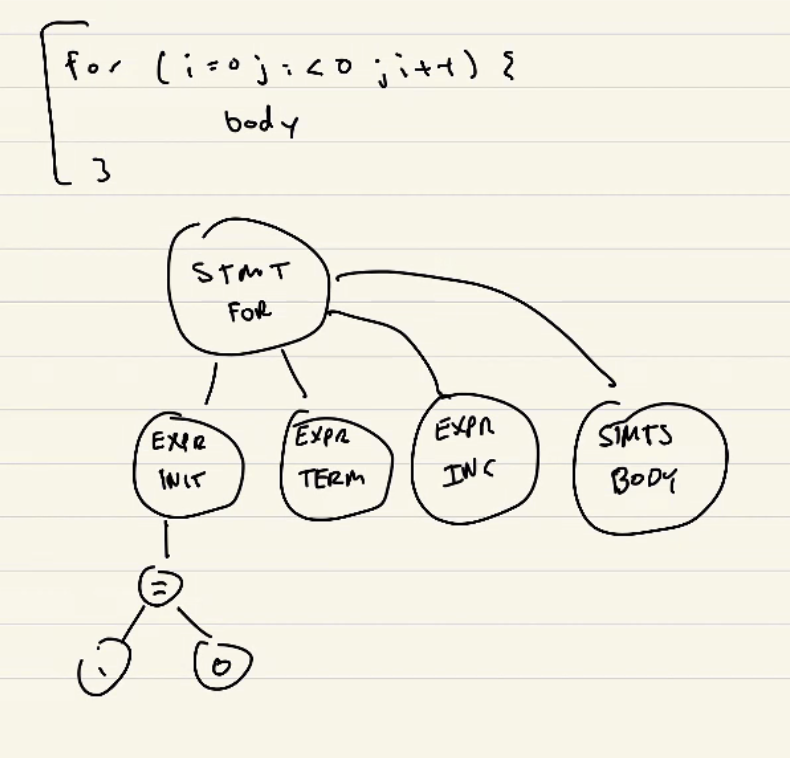 for (i=0; i<0; i++) {
body
}
STMT
FOR
EXPR
INIT
EXPR
TERM
EXPR
INC
STMTS
BODY
=
i
0